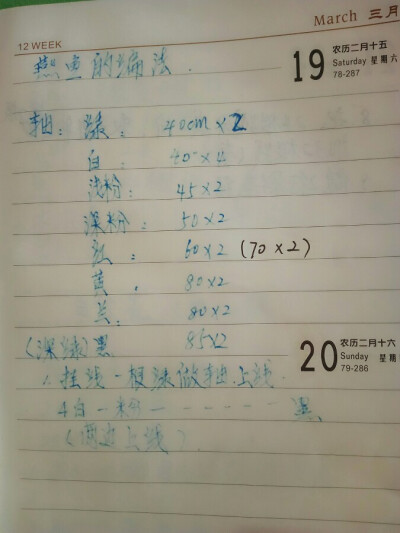 March 三月
12 WEEK
19 农历二月十五
Saturday 星期六
78-287
燕鱼的编法.
轴: 绿: 40cm×2
白: 40×4
浅粉: 45×2
深粉: 50×2
红: 60×2 (70×2)
黄, 80×2
兰: 80×2
(深绿)黑 85×2
20 农历二月十六
Sunday 星期
79-286
1. 挂线一根绿做轴上线.
4白-粉------黑
(两边上线).